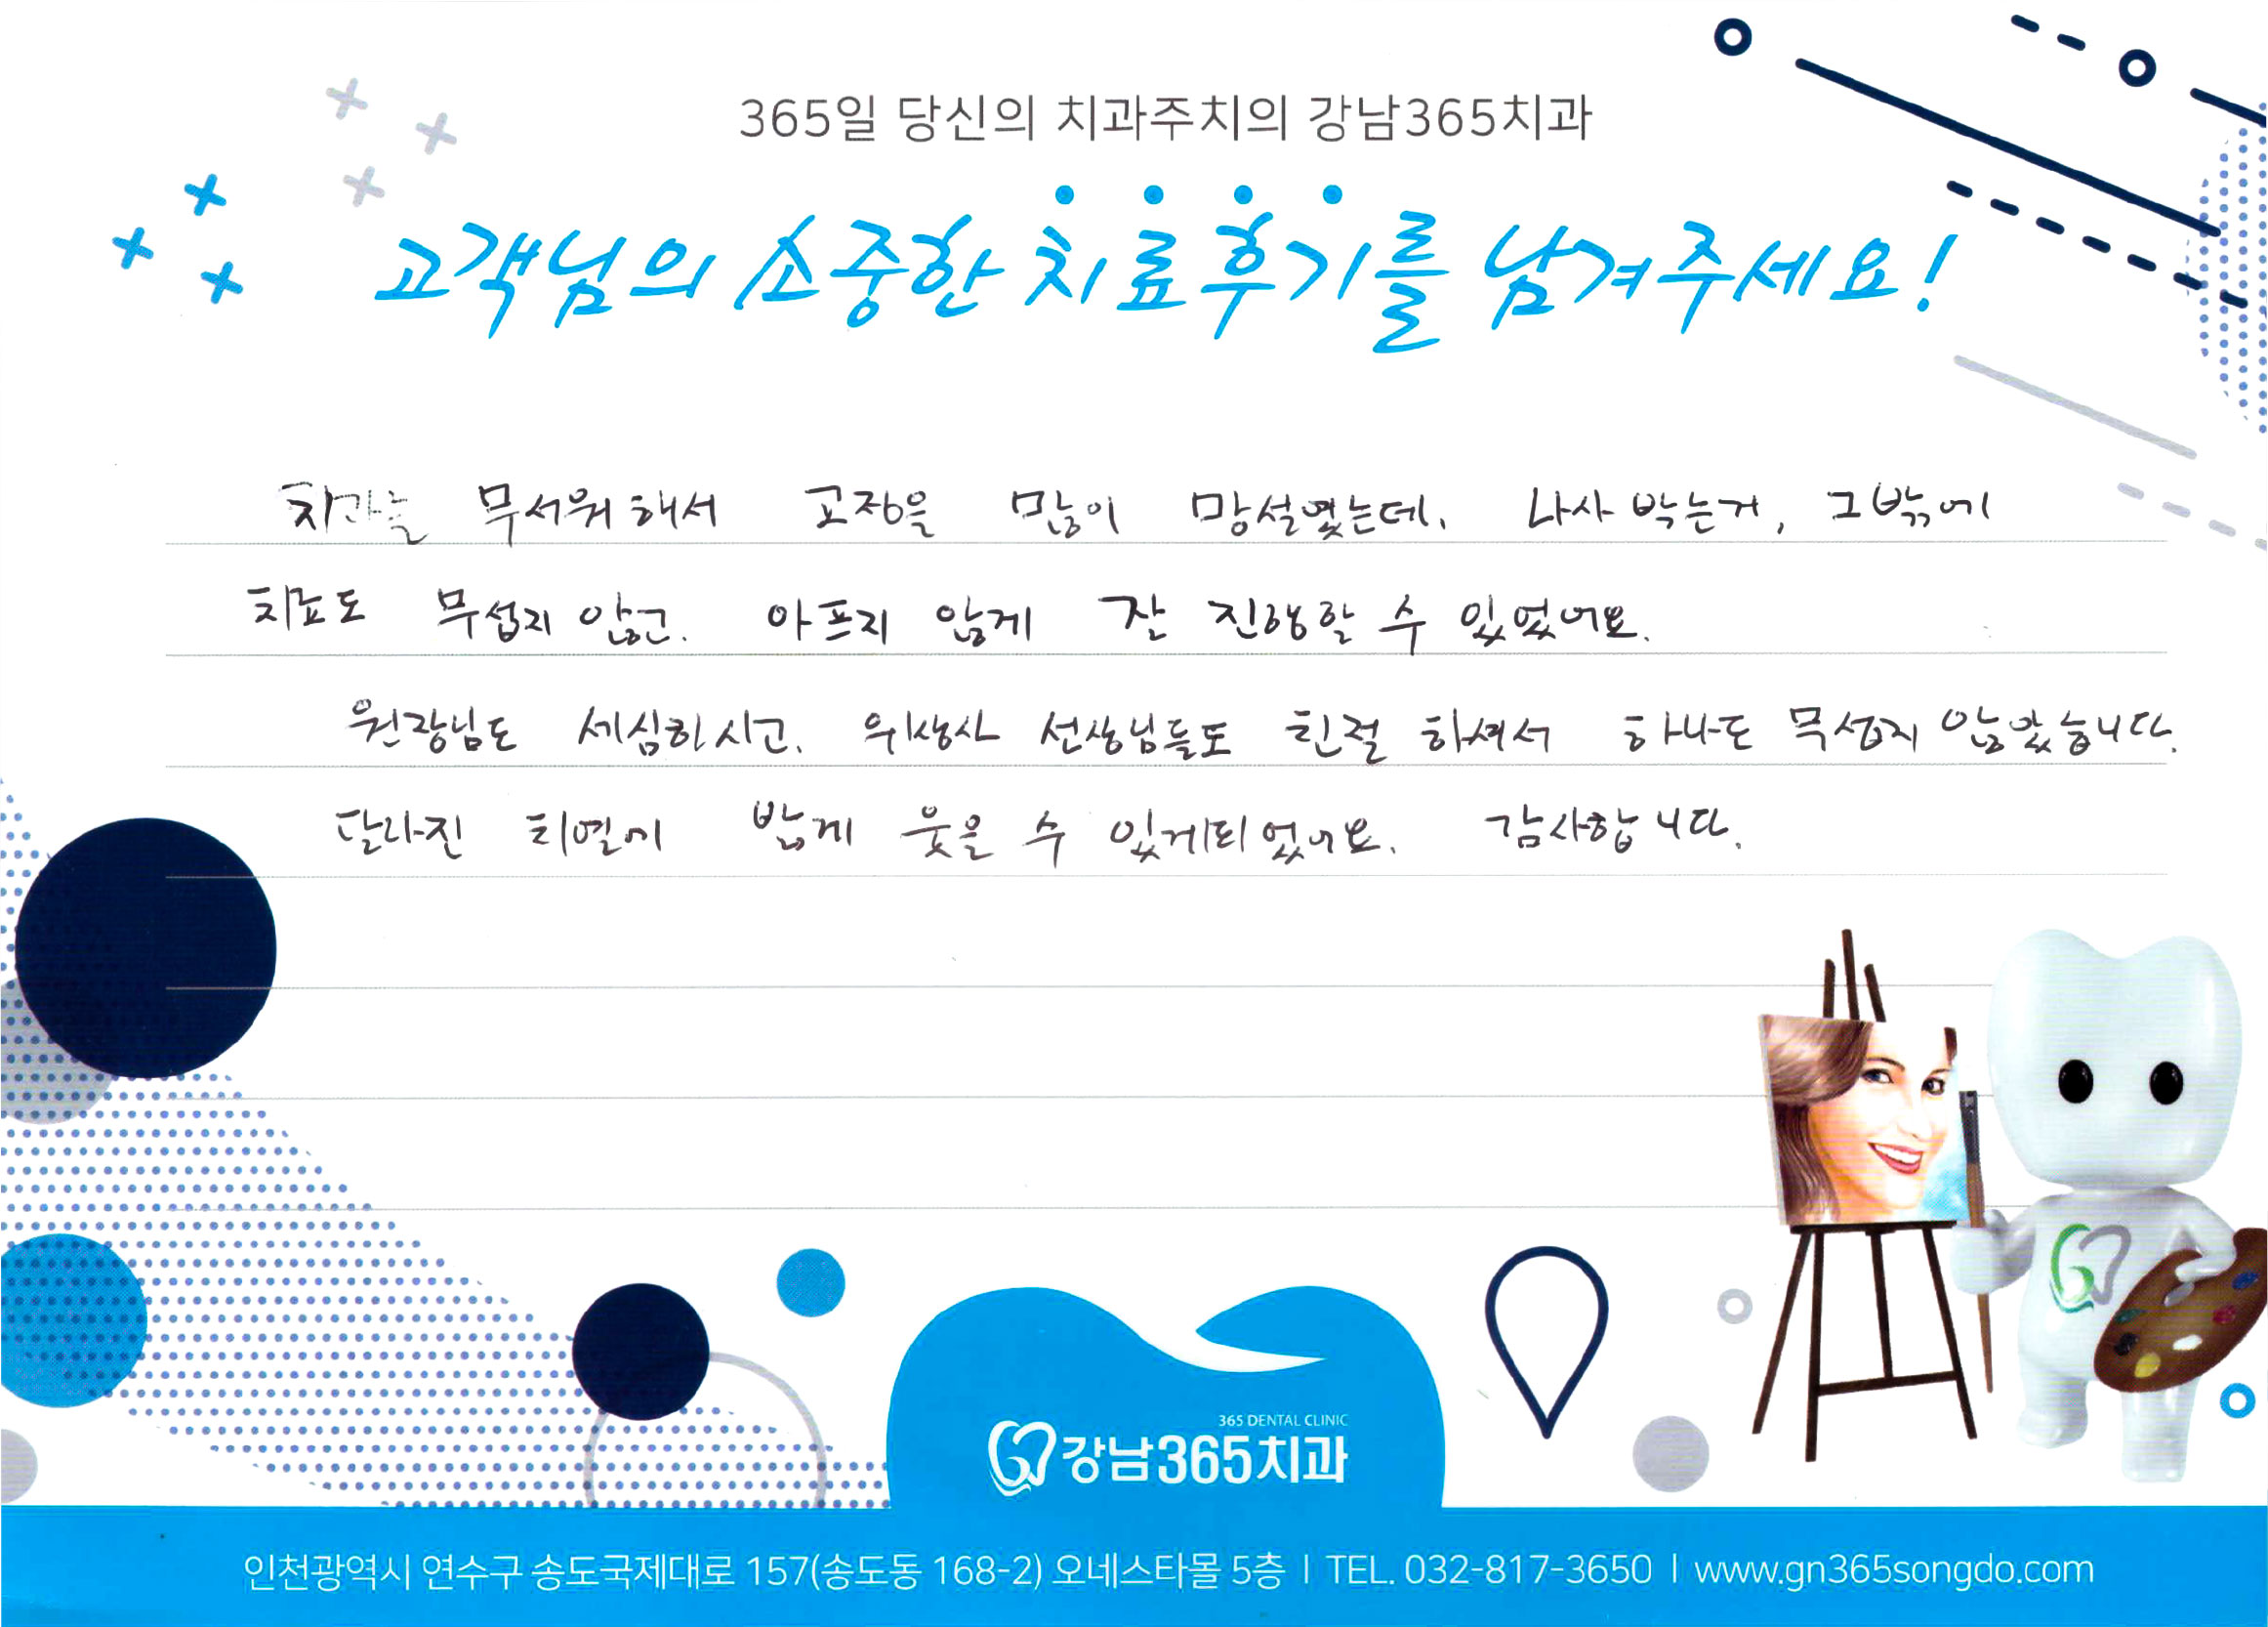 365일 당신의 치과주치의 강남365치과
고객님의 소중한 치료후기를 남겨주세요!
치과를 무서워해서 교정을 많이 망설였는데, 나사 박는거, 그밖에
치료도 무섭지 않고, 아프지 않게 잘 진행할 수 있었어요.
원장님도 세심하시고, 위생사 선생님들도 친절 하셔서 하나도 무섭지 않았습니다.
달라진 치열에 밝게 웃을 수 있게되었어요. 감사합니다.
365 DENTAL CLINIC
강남365치과
인천광역시 연수구 송도국제대로 157(송도동 168-2) 오네스타몰 5층 I TEL. 032-817-3650 I www.gn365songdo.com